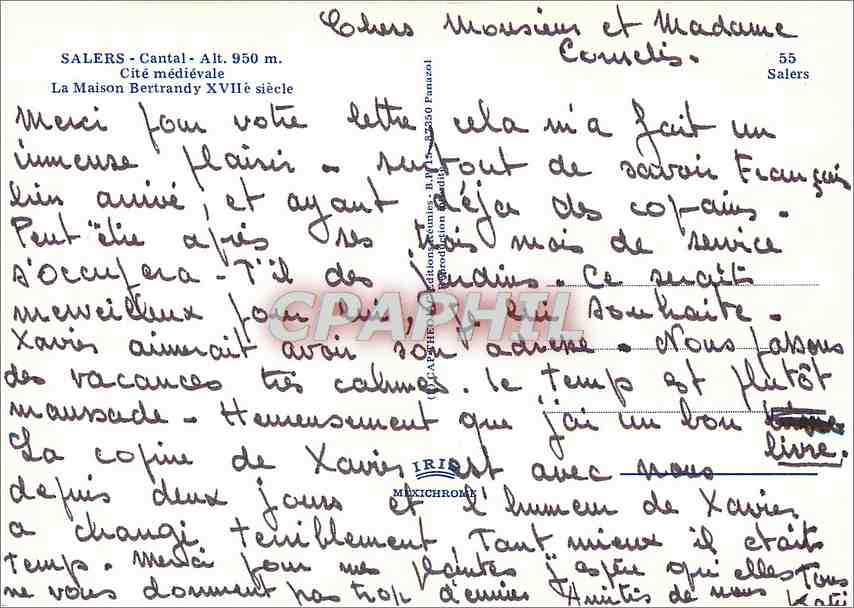 Chers Monsieur et Madame
Cornelis.
SALERS - Cantal - Alt. 950 m.
Cité médiévale
La Maison Bertrandy XVIIè siècle
55
Salers
Merci pour votre lettre, cela m'a fait un
immense plaisir - surtout de savoir François
bien arrivé, et ayant déja des copains.
Peut être après ses trois mois de service
s'occupera-t'il des jardins. Ce serait
merveilleux pour lui, et je lui souhaite.
Xavier aimerait avoir son adresse. Nous passons
des vacances très calmes. le temps est plutôt
maussade - Heureusement que j'ai un bon
livre.
La copine de Xavier est avec nous
depuis deux jours et l'humeur de Xavier
a changé terriblement, Tant mieux il était
temps. Merci pour mes plantes j'espère qu'elles
ne vous donnent pas trop d'ennuis Amitiés de nous Tous
Katy
Editions Réunies - B.P. 15 - 87350 Panazol
Reproduction interdite
CPAPHIL
IRIS
MEXICHROME